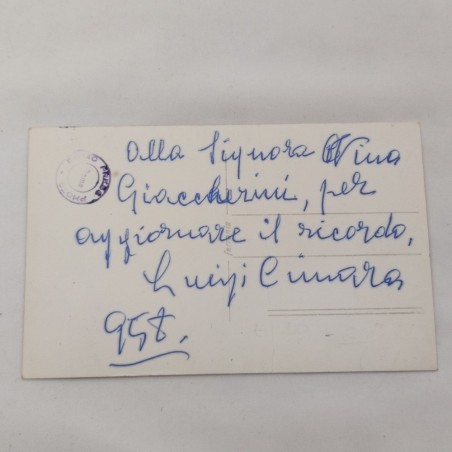 Alla Signora Nina
Giaccherini, per
aggiornare il ricordo,
Luigi Cimara
957.